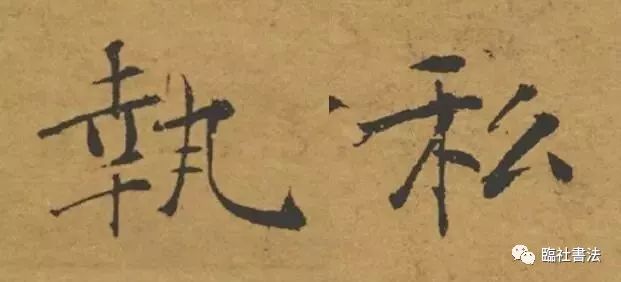 執私
臨社書法